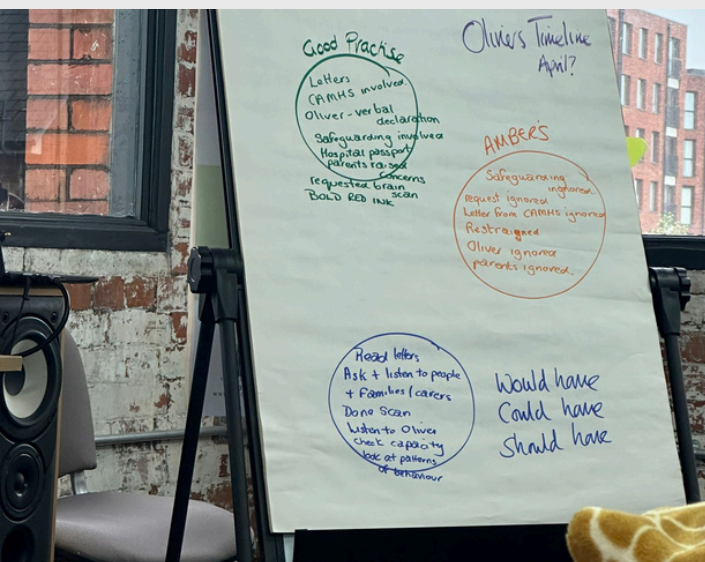 Good Practise
Letters
CAMHS involved.
Oliver - verbal
declaration
Safeguarding involved
Hospital passport
parents raised
concerns
requested brain
scan
BOLD RED INK
Olivers Timeline
April?
AMBER'S
Safeguarding
ingnored
request ignored
Letter from CAMHS ignored
Restraigned
Oliver ignored
parents ignored.
Read letters
Ask + listen to people
+ Families/carers
Done Scan
Listen to Oliver
check capacity
look at patterns
of behaviour
Would have
Could have
Should have